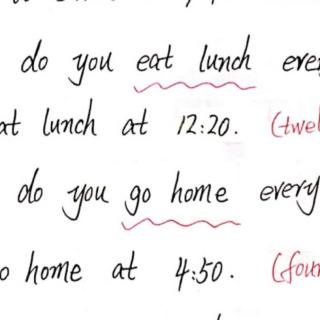 do you eat lunch eve
at lunch at 12:20. (twel
do you go home every
o home at 4:50. (four